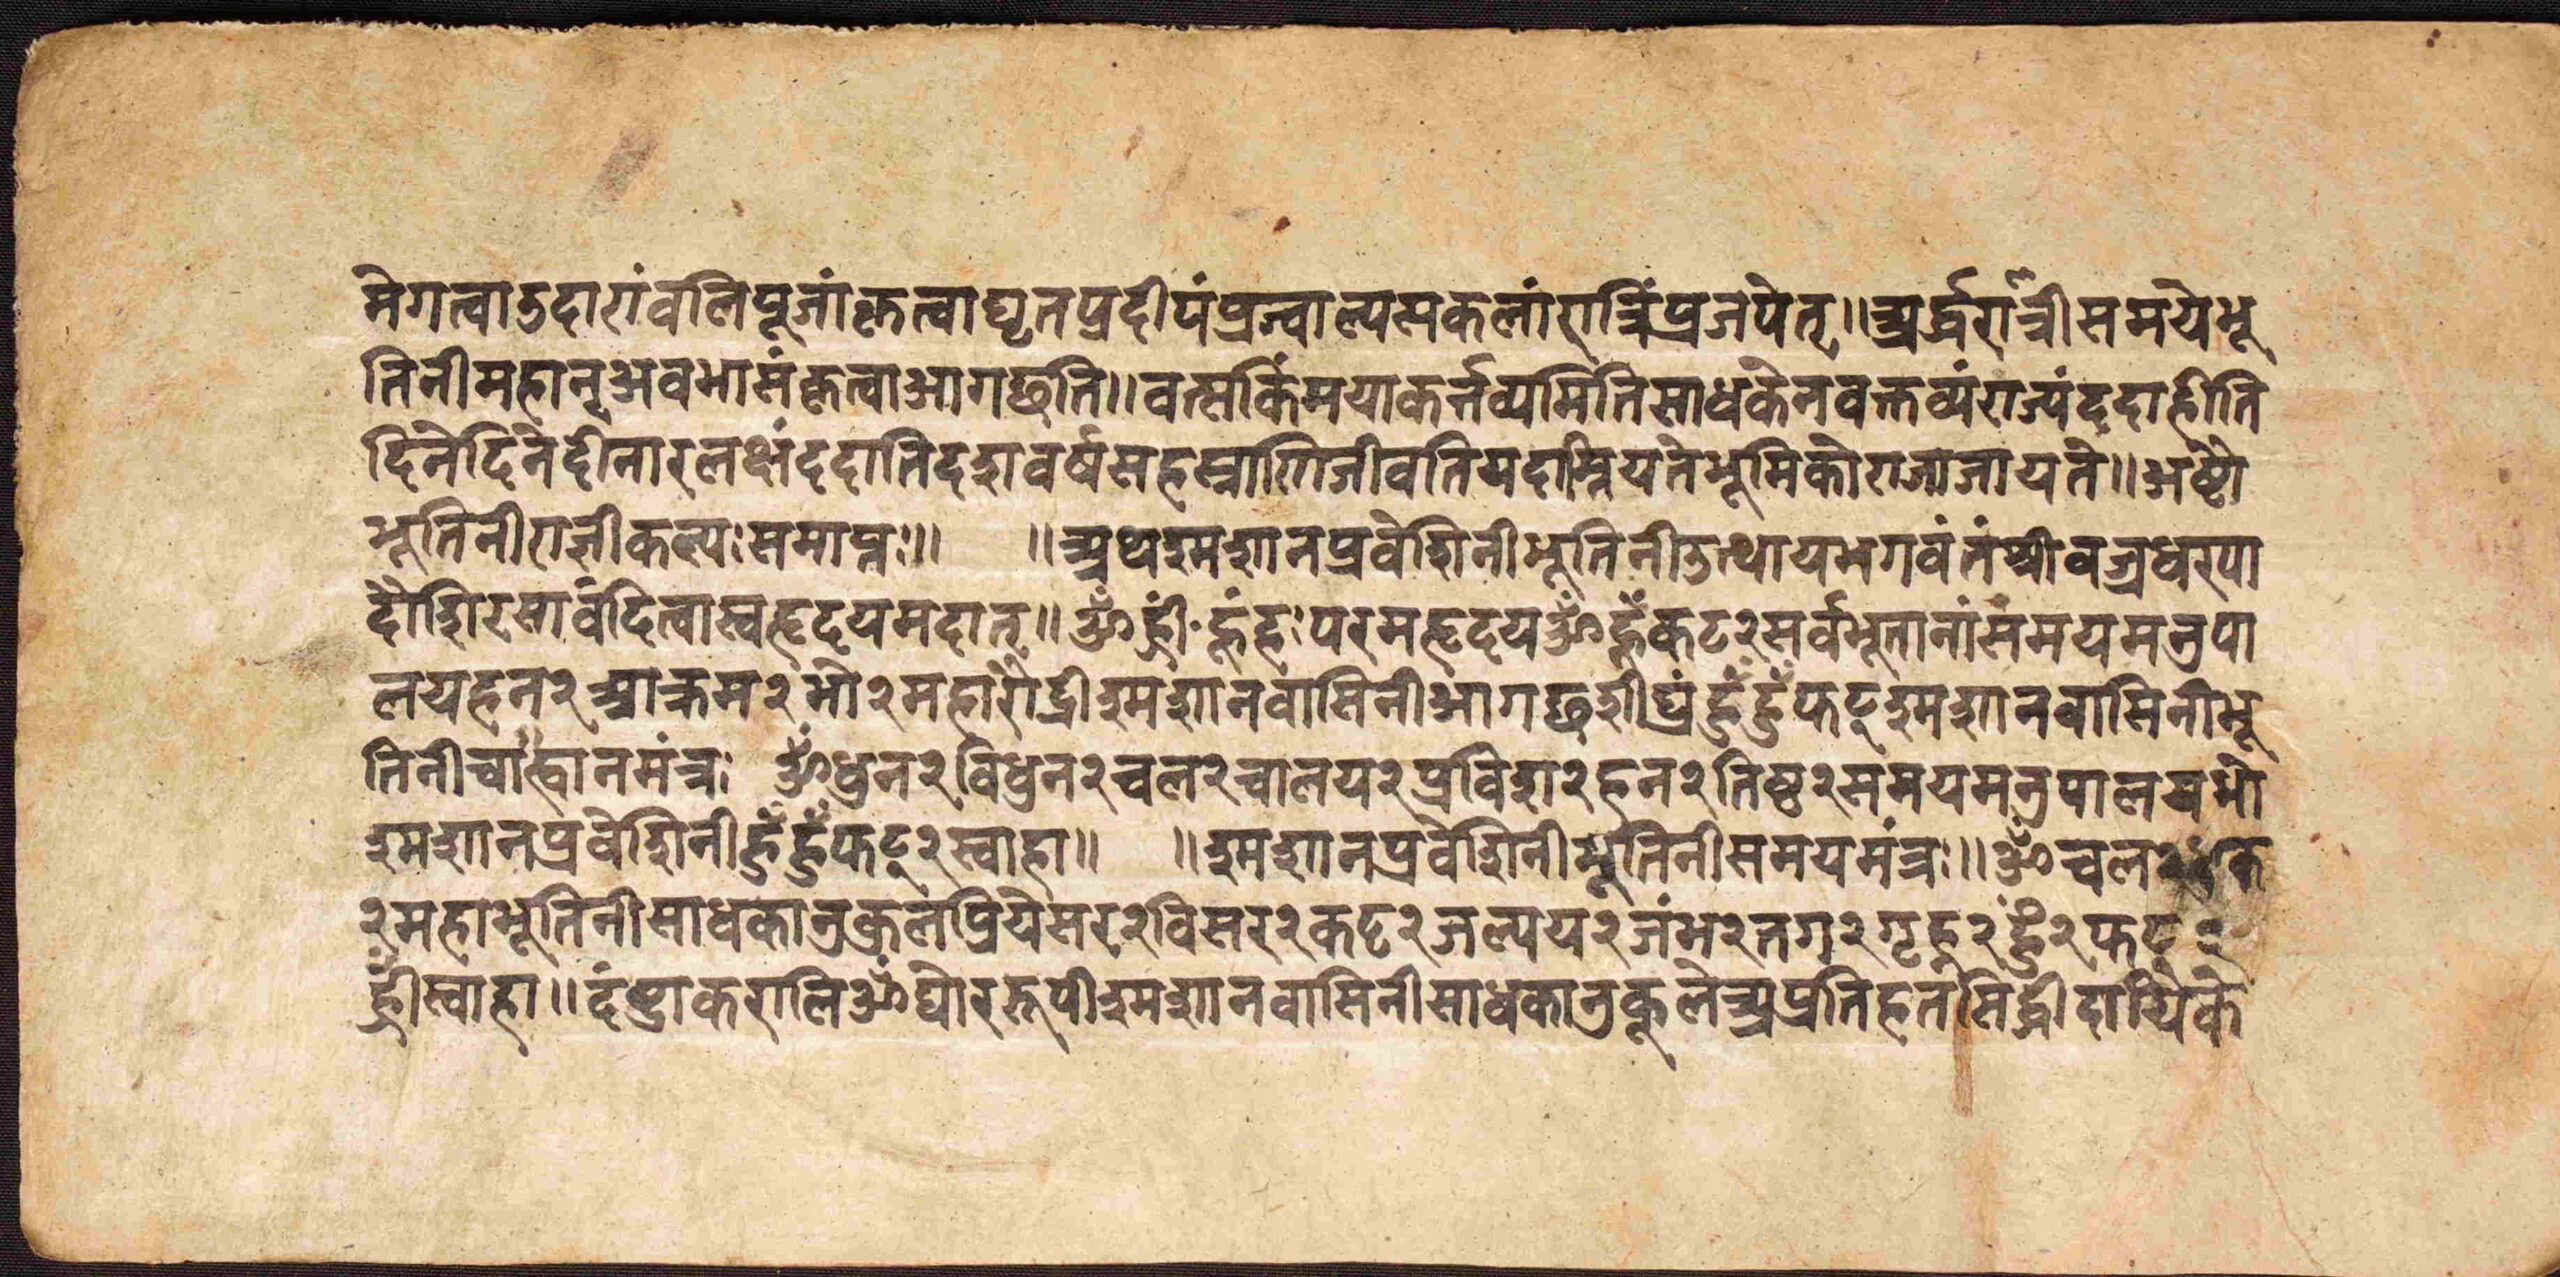 मेगत्वाउदारांवलिपूजांकृत्वाघृतप्रदीपंप्रज्वाल्यसकलांरात्रिंप्रजपेत्॥अर्द्धरात्रीसमयेभू
तिनीमहान्अवभासंकृत्वाआगछति॥वत्सकिंमयाकर्त्तव्यमितिसाधकेनवक्तव्यंराज्यंददाहीति
दिनेदिनेदीनारलक्षंददातिदशवर्षसहस्राणिजीवतियदाम्रियतेभूमिकोराजाजायते॥अष्टौ
भूतिनीराज्ञीकल्पःसमाप्तः॥ ॥अथश्मशानप्रवेशिनीभूतिनीउत्थायभगवंतंश्रीवज्रधरपा
दौशिरसावंदित्वास्वहृदयमदात्॥ॐह्रीं·हूंहः परमहृदयॐहूँकट२सर्वभूतानांसमयमनुपा
लयहन२आक्रम२भो२महारौद्रीश्मशानवासिनीआगछशीघ्रंहुँहुँफट्श्मशानवासिनीभू
तिनीचाह्वानमंत्रः ॐधुन२विधुन२चल२चालय२प्रविश२हन२तिष्ठ२समयमनुपालयभो
श्मशानप्रवेशिनीहुँहुँफट्२स्वाहा॥ ॥श्मशानप्रवेशिनीभूतिनीसमयमंत्रः॥ॐचल२
२महाभूतिनीसाधकानुक्रलप्रियेसर२विसर२कट्ट२जल्पय२जंभ२तग२गृह्न२हुँ२फट्२
ह्रींस्वाहा॥दंष्ट्राकरालिॐघोररूपीश्मशानवासिनीसाधकानुकूलेअप्रतिहतसिद्धीदायिके